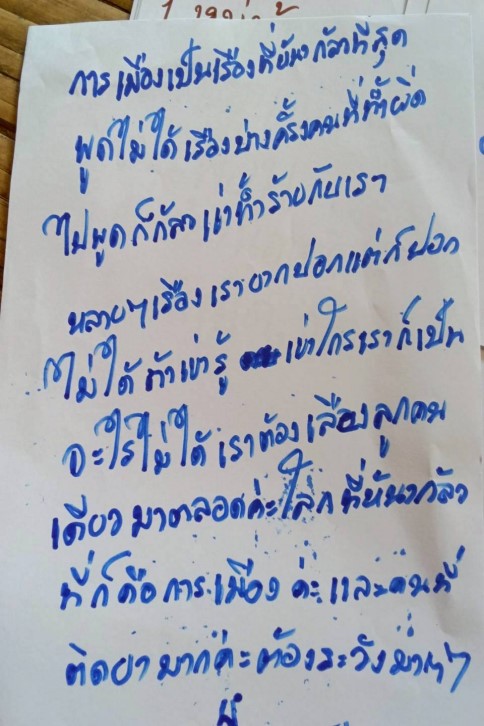 การเมืองเป็นเรื่องที่น่ากลัวที่สุด
พูดไม่ได้เรื่องบ่างครั้งคนที่ทำผิด
ไปพูดก็กลัวเขาทำร้ายกับเรา
หลายๆเรื่องเราอยากบอกแต่ก็บอก
ไม่ได้ถ้าเขารู้ เขาโกรธเราก็เป็น
อะไรไม่ได้เราต้องเลี้ยงลูกคน
เดียวมาตลอดค่ะโลกที่น่ากลัว
ที่ก็คือการเมือง ค่ะและคนที่
ติดยามากค่ะต้องระวังมากๆ